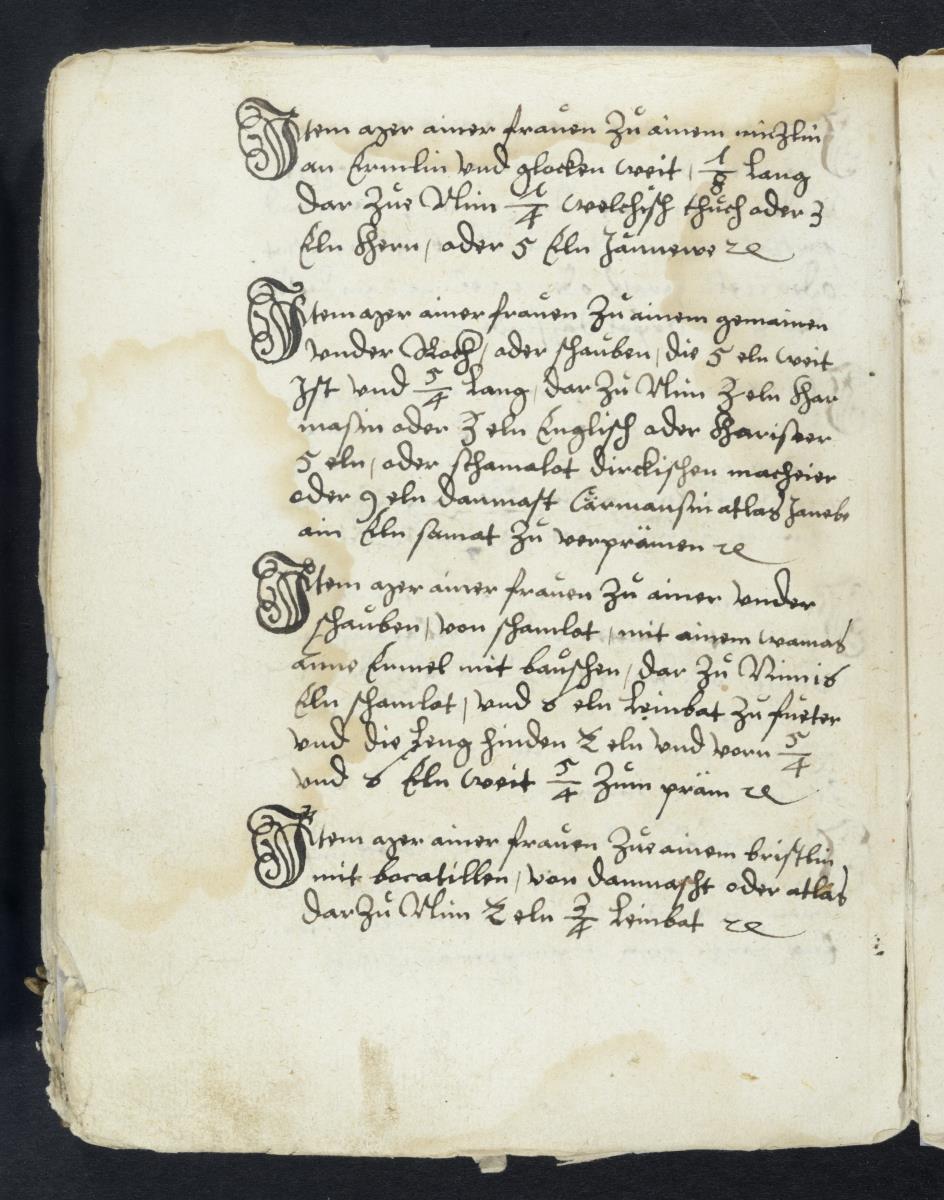 Item aper ainer frauen Zu ainem
an Ermlin vnd glocken weit, 1/8 lang
dar Zue Nim /4 welchisch thuch oder 3
Eln Kern, oder 5 Eln Jannewe ꝛc
Item aper ainer frauen Zu ainem gemainen
vnder Rockh, oder schauben, die 5 eln weit
Jst vnd 5/4 lang, dar Zu Nim 3 eln Kar
masin oder 3 eln Englisch oder Kariseer
5 eln, oder schamalot dirckischen macheier
oder 9 eln dannast Carmansin atlas Janebe
ain Eln samat Zu verprämen ꝛc
Item aper ainer frauen Zu ainer vnder
schauben, von schamlot, mit ainem wamas
anne Ermel mit bauschen, dar Zu Nim 18
Eln schamlot, vnd 8 eln leinbat Zu fueter
vnd die leng hinden 2 eln vnd vorn 5/4
vnd 8 Eln weit 5/4 Zum präm ꝛc
Item aper ainer frauen Zue ainem bristlin
mit bocatillen, von dannascht oder atlas
dar Zu Nim 2 eln 3/4 leinbat ꝛc